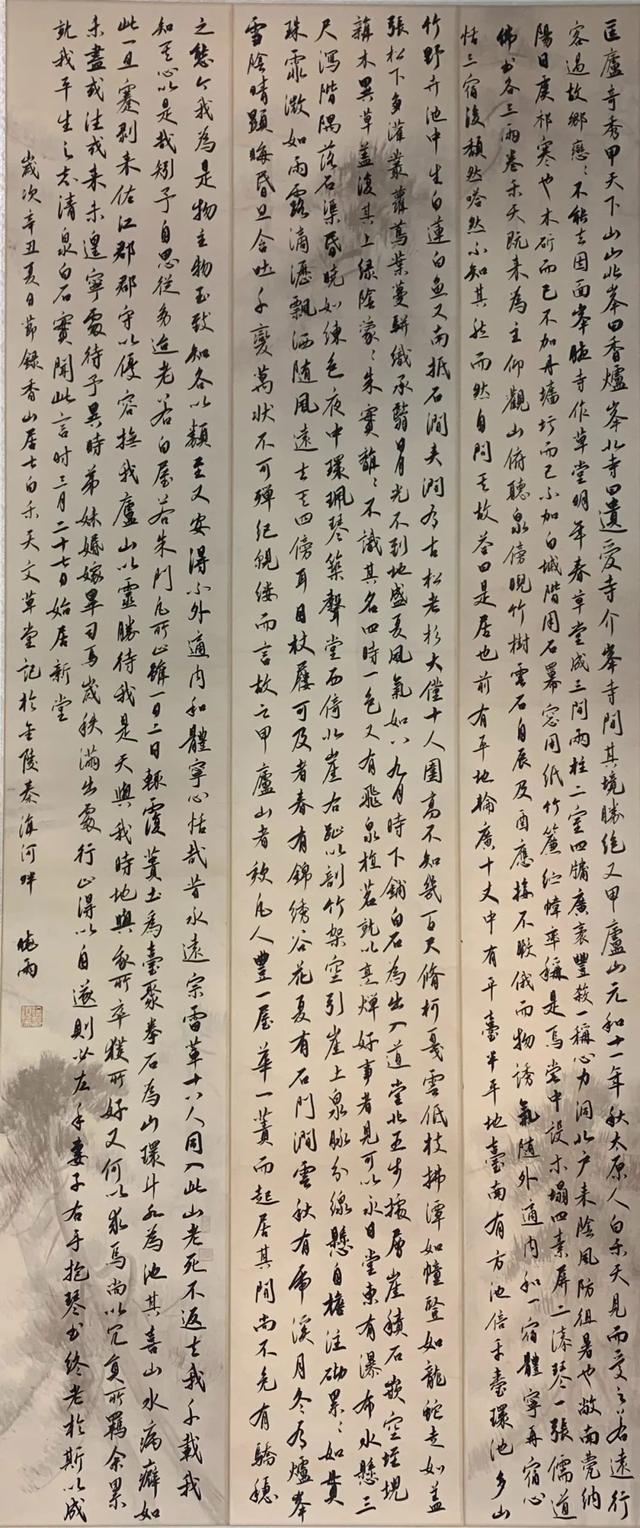 匡廬奇秀甲天下山山北峯曰香爐峯北寺曰遺愛寺介峯寺間其境勝絕又甲廬山元和十一年秋太原人白乐天見而愛之若遠行
客過故鄉戀々不能去因面峯腋寺作草堂明年春草堂成三間兩柱二室四牖廣袤豐殺一稱心力洞北户来陰風防徂暑也敞南甍納
陽日虞祁寒也木斫而已不加丹墻圬而已不加白堿階用石冪窓用紙竹簾紵幃率稱是焉堂中設木榻四素屏二漆琴一張儒道
佛书各三兩卷乐天既来為主仰觀山俯聽泉傍睨竹樹雲石自辰及酉應接不暇俄而物誘氣随外適内和一宿體寧再宿心
恬三宿後頹然嗒然不知其然而然自問其故答曰是居也前有平地輪廣十丈中有平臺半平地臺南有方池倍平臺環池多山
竹野卉池中生白蓮白魚又南抵石澗夹澗有古松老杉大僅十人圍高不知幾百尺脩柯戛雲低枝拂潭如幢竪如龍蛇走如蓋
張松下多灌叢蘿蔦葉蔓駢織承翳日月光不到地盛夏風氣如八九月時下鋪白石為出入道堂北五步據層崖積石嵌空垤堄
雜木異草蓋復其上绿陰蒙々朱實離々不識其名四時一色又有飛泉植茗就以烹燀好事者見可以永日堂東有瀑布水懸三
尺瀉階隅落石渠昏曉如練色夜中環珮琴築聲堂西倚北崖右趾以剖竹架空引崖上泉脉分線懸自檐注砌累々如貫
珠霏微如雨露滴瀝飄洒随風遠去其四傍耳目杖屨可及者春有錦绣谷花夏有石門澗雲秋有虎溪月冬有爐峯
雪陰晴顯晦昏旦含吐千變萬状不可殫纪覼缕而言故云甲廬山者噫凡人豐一屋華一簀而起居其間尚不免有驕穩
之態今我為是物主物至致知各以類至又安得不外適内和體寧心恬哉昔永遠宗雷輩十八人同入此山老死不返去我千載我
知其心以是哉矧予自思從幼迨老若白屋若朱門凡所止雖一日二日輒覆簣土為臺聚拳石為山環斗水為池其喜山水病癖如
此一旦蹇剝来佐江郡郡守以優容撫我廬山以靈勝待我是天與我時地與我所卒獲所好又何以求焉尚以冗員所羈余累
未盡或往或来未遑寧處待予異時弟妹婚嫁畢司馬歲秩滿出處行止得以自遂則必左手妻子右手抱琴书终老於斯以成
就我平生之志清泉白石實聞此言时三月二十七日始居新堂
歲次辛丑夏日节錄香山居士白乐天文草堂記於金陵秦淮河畔 雨